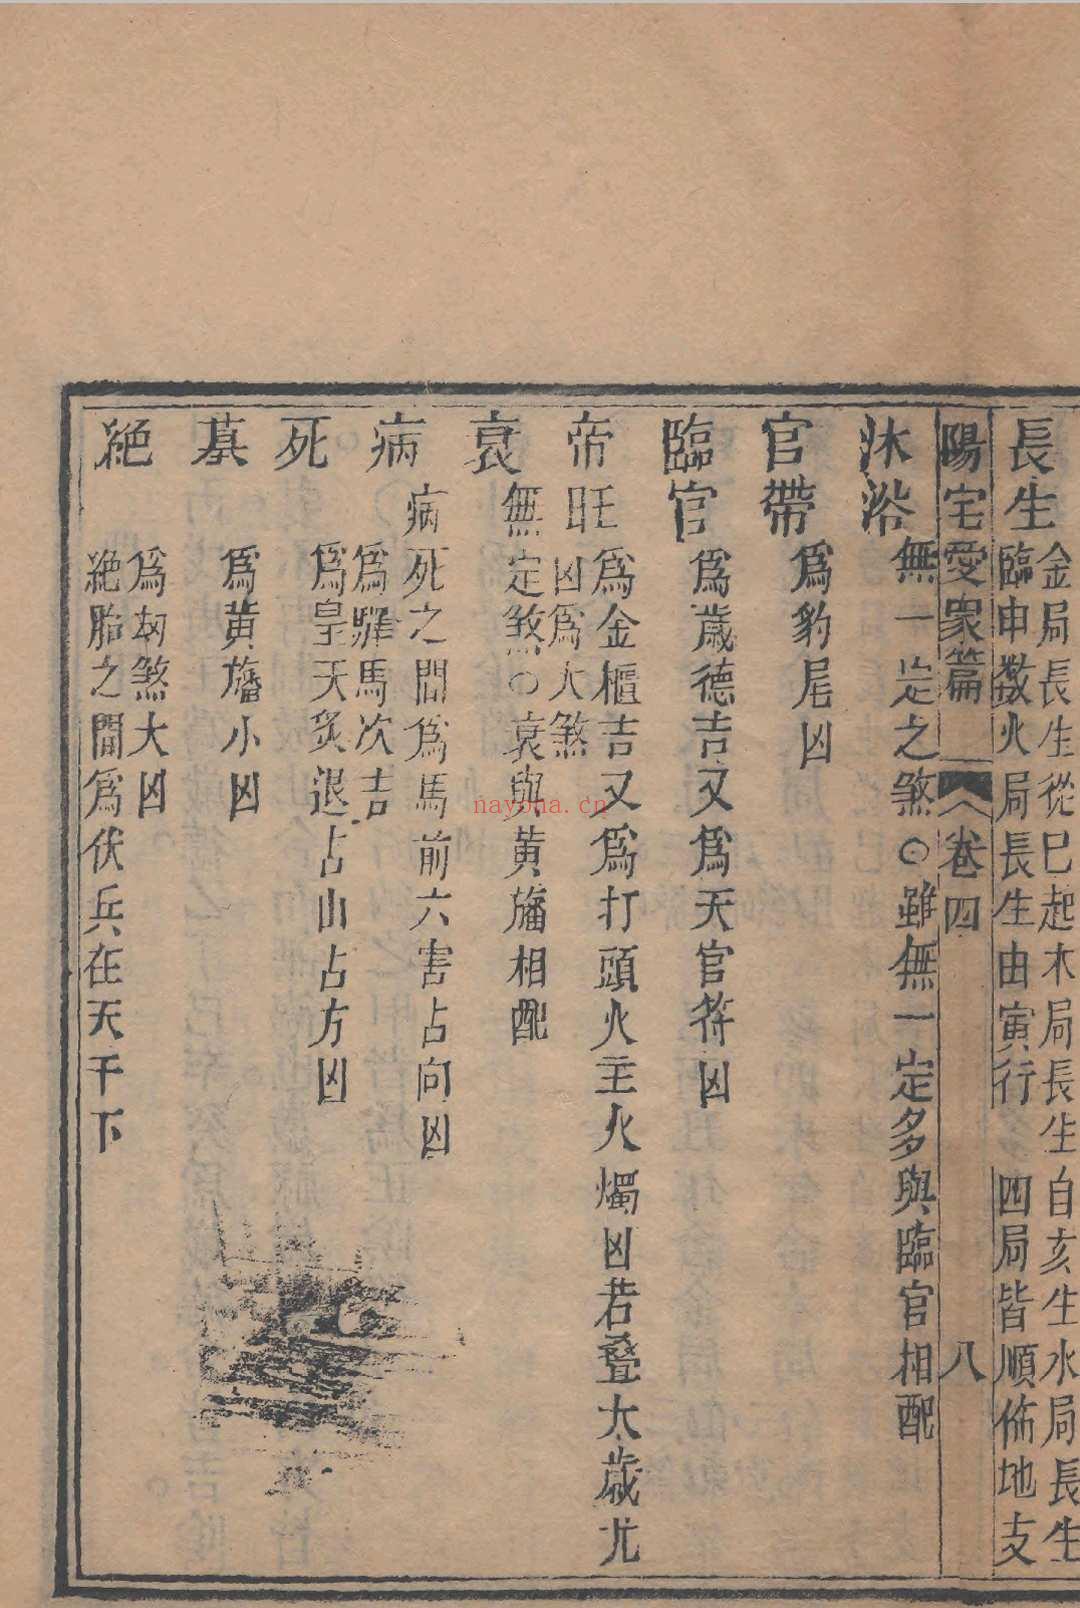 長生
金局長生從巳起木局長生自亥生水局長生
臨申数火局長生由寅行 四局皆順佈地支
陽宅愛眾篇 卷四 八
沐浴 無一定之煞○雖無一定多與臨官相配
官帶 為豹尾凶
臨官 為歲德吉又為天官符凶
帝旺 為金櫃吉又為打頭火主火燭凶若疊太歲尤
凶為大煞
衰 無定煞○衰與黃旛相配
病 病死之間為馬前六害占向凶
為驛馬次吉
死 為皇天炙退占山占方凶
墓 為黃旛小凶
絕 為刼煞大凶
絕胎之間為伏兵在天干下
nayona.cn